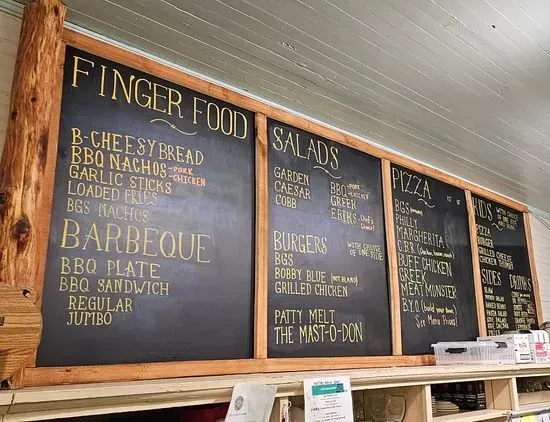 FINGER FOOD
B-CHEESYBREAD
BBQ NACHOS -PORK -CHICKEN
GARLIC STICKS
LOADED FRIES
BGS NACHOS
BARBEQUE
BBQ PLATE
BBQ SANDWICH
REGULAR
JUMBO
SALADS
GARDEN
CAESAR
COBB
BBQ -PORK -CHICKEN
GREEK
EBIRS
BURGERS
WITH CHOICE OF ONE SIDE
BGS
BOBBY BLUE (NOT BLAND)
GRILLED CHICKEN
PATTY MELT
THE MAST-O-DON
PIZZA
BGS
PHILLY
MARGHERITA
C.B.R.
BUFF CHICKEN
GREEK
MEAT MONSTER
B.Y.O. (build your own)
See Menu Prices!
KIDS
WITH CHOICE OF ONE SIDE
PIZZA
BURGER
GRILLED CHEESE
CHICKEN
SIDES
SLAW
POTATO SALAD
BAKED BEANS
FRUIT
DRINKS